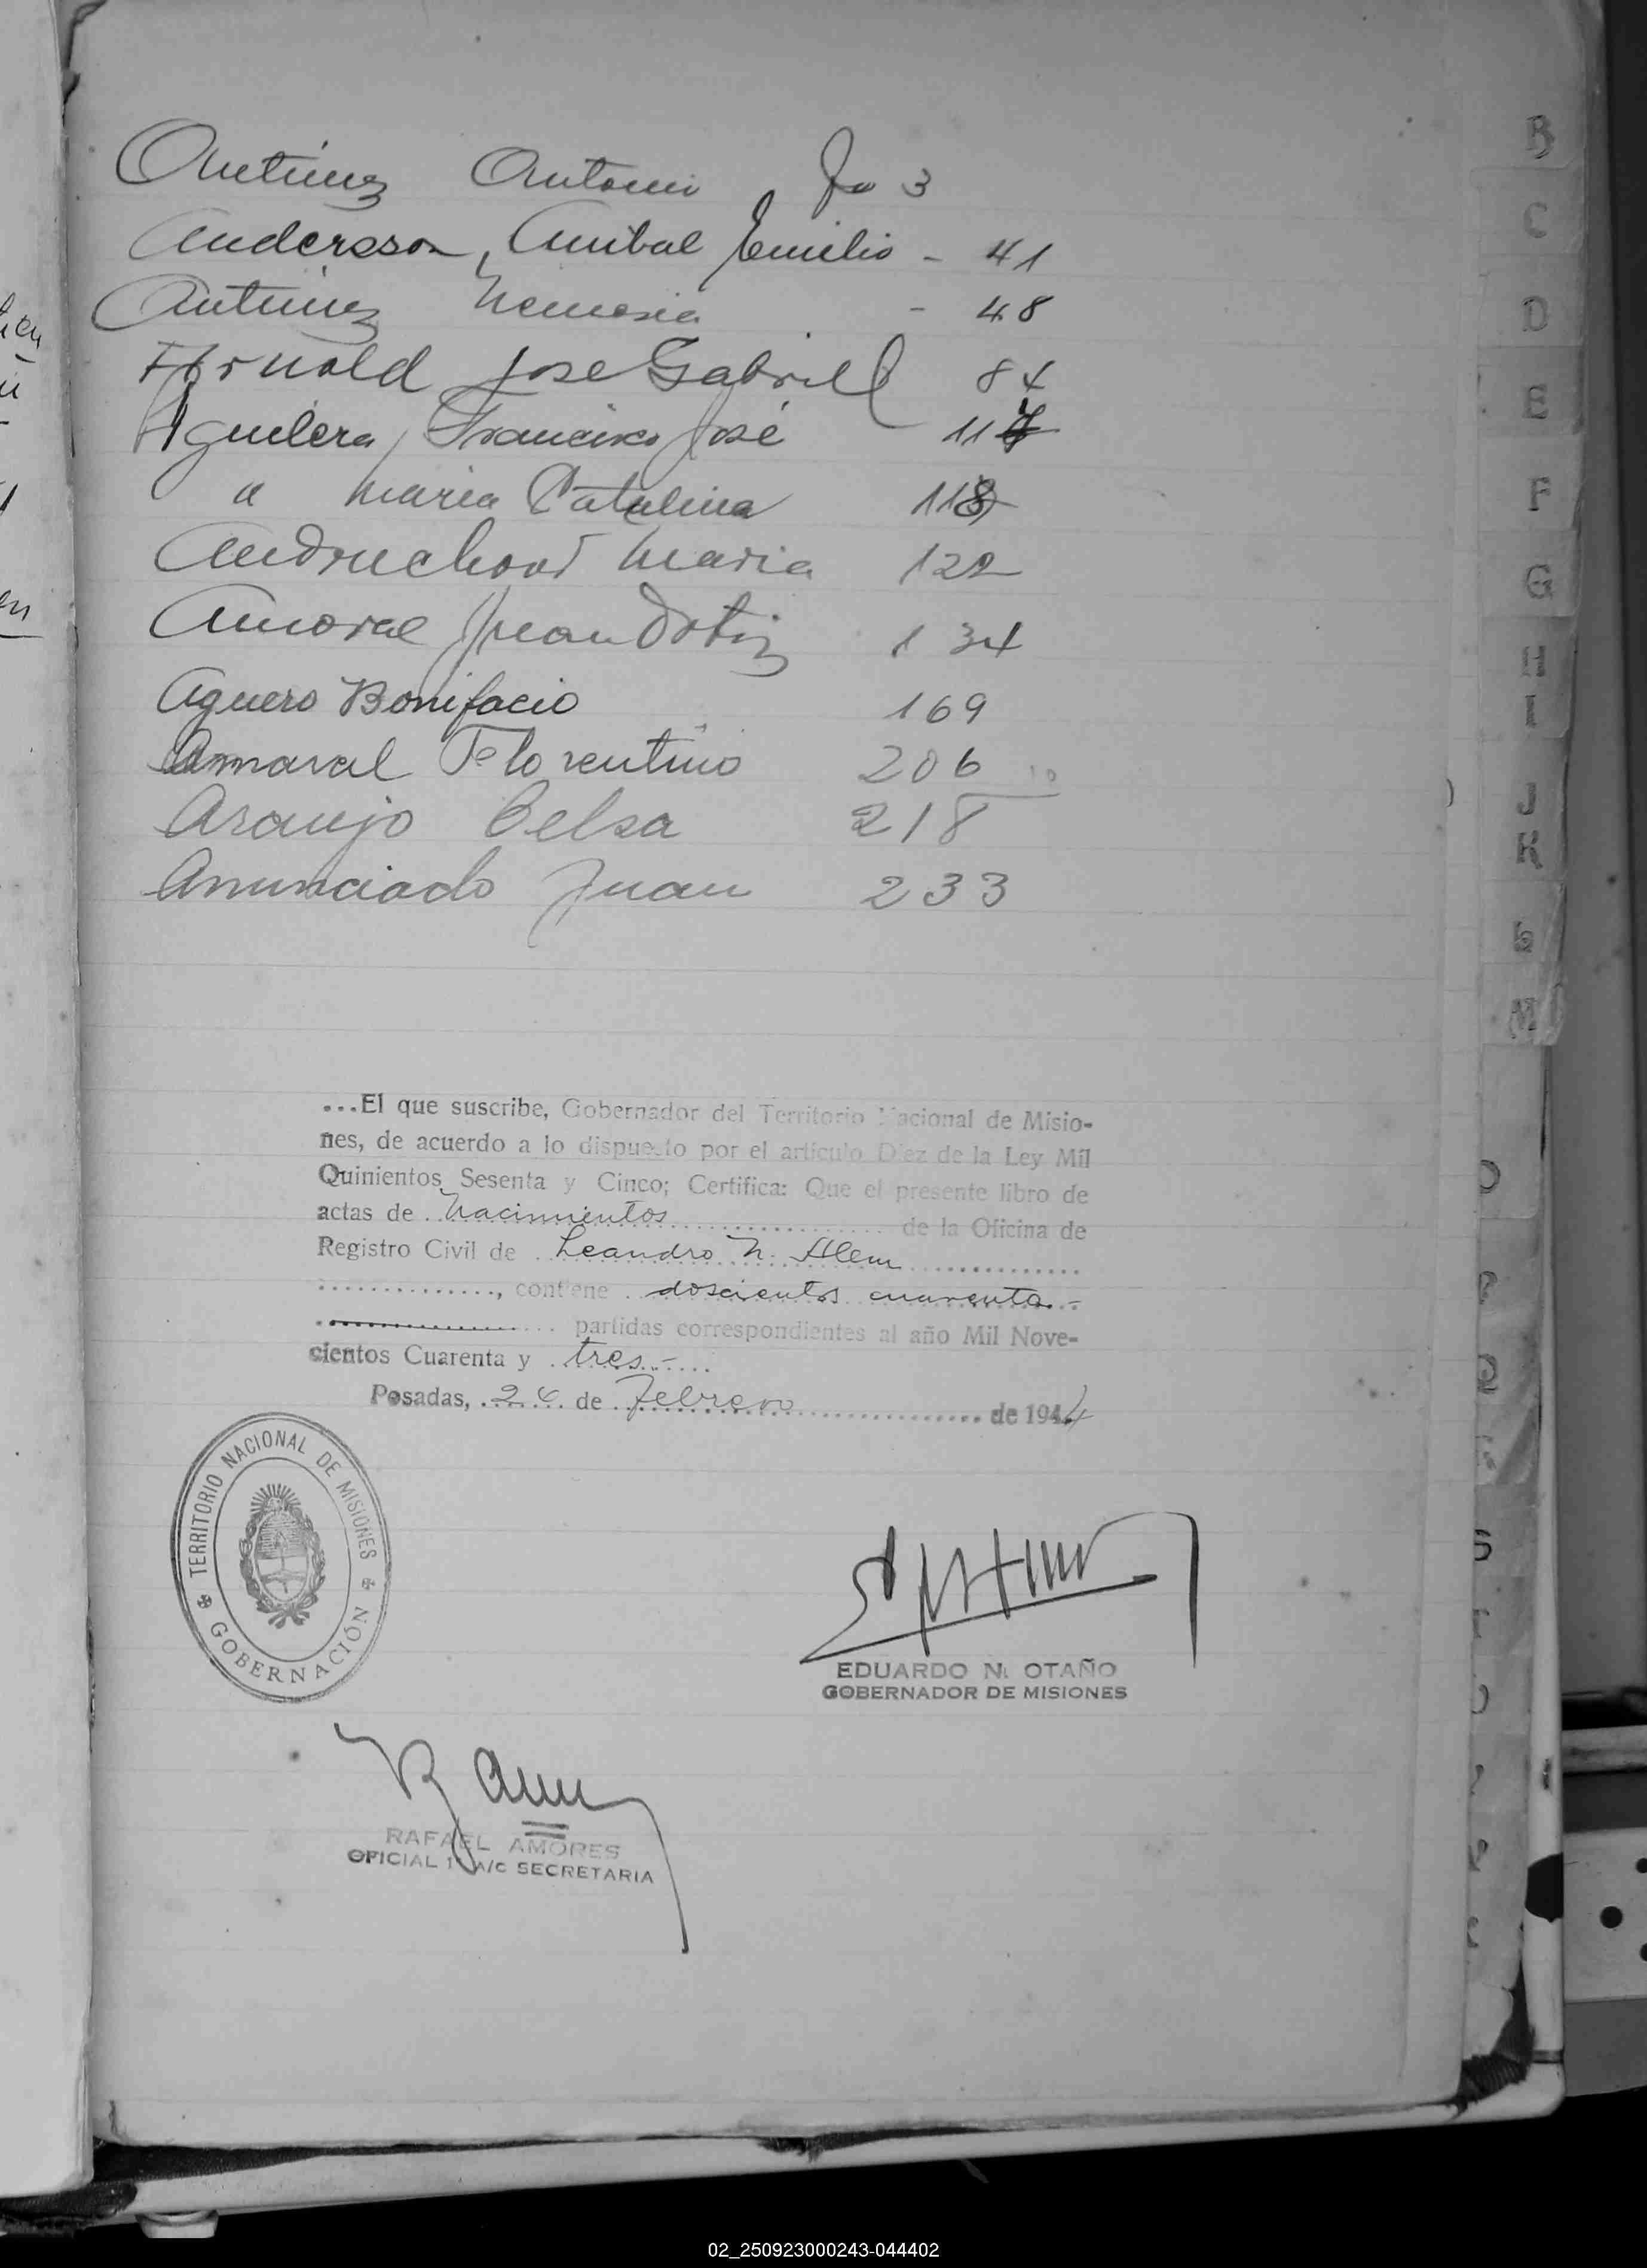 Antúnez Antonio Fo 3
Andersson, Anibal Emilio - 41
Antúnez Nemesia - 48
Arnold Jose Gabriel 84
Aguilera, Francisco José 117
" Maria Catalina 118
Maria 122
Amoral Juan 134
Aguero Bonifacio 169
Ammaral Florentino 206
Araujo Celsa 218
Anunciado Juan 233
...El que suscribe, Gobernador del Territorio Nacional de Misio-
nes, de acuerdo a lo dispuesto por el artículo Diez de la Ley Mil
Quinientos Sesenta y Cinco; Certifica: Que el presente libro de
actas de Nacimientos de la Oficina de
Registro Civil de Leandro N. Alem
, contiene doscientos cuarenta.-
partidas correspondientes al año Mil Nove-
cientos Cuarenta y tres.-
Posadas, 26 de Febrero de 1944
TERRITORIO NACIONAL DE MISIONES
GOBERNACIÓN
EDUARDO N. OTAÑO
GOBERNADOR DE MISIONES
RAFAEL AMORES
OFICIAL 1° A/C SECRETARIA
B
C
D
E
F
G
H
I
J
K
L
M
02_250923000243-044402